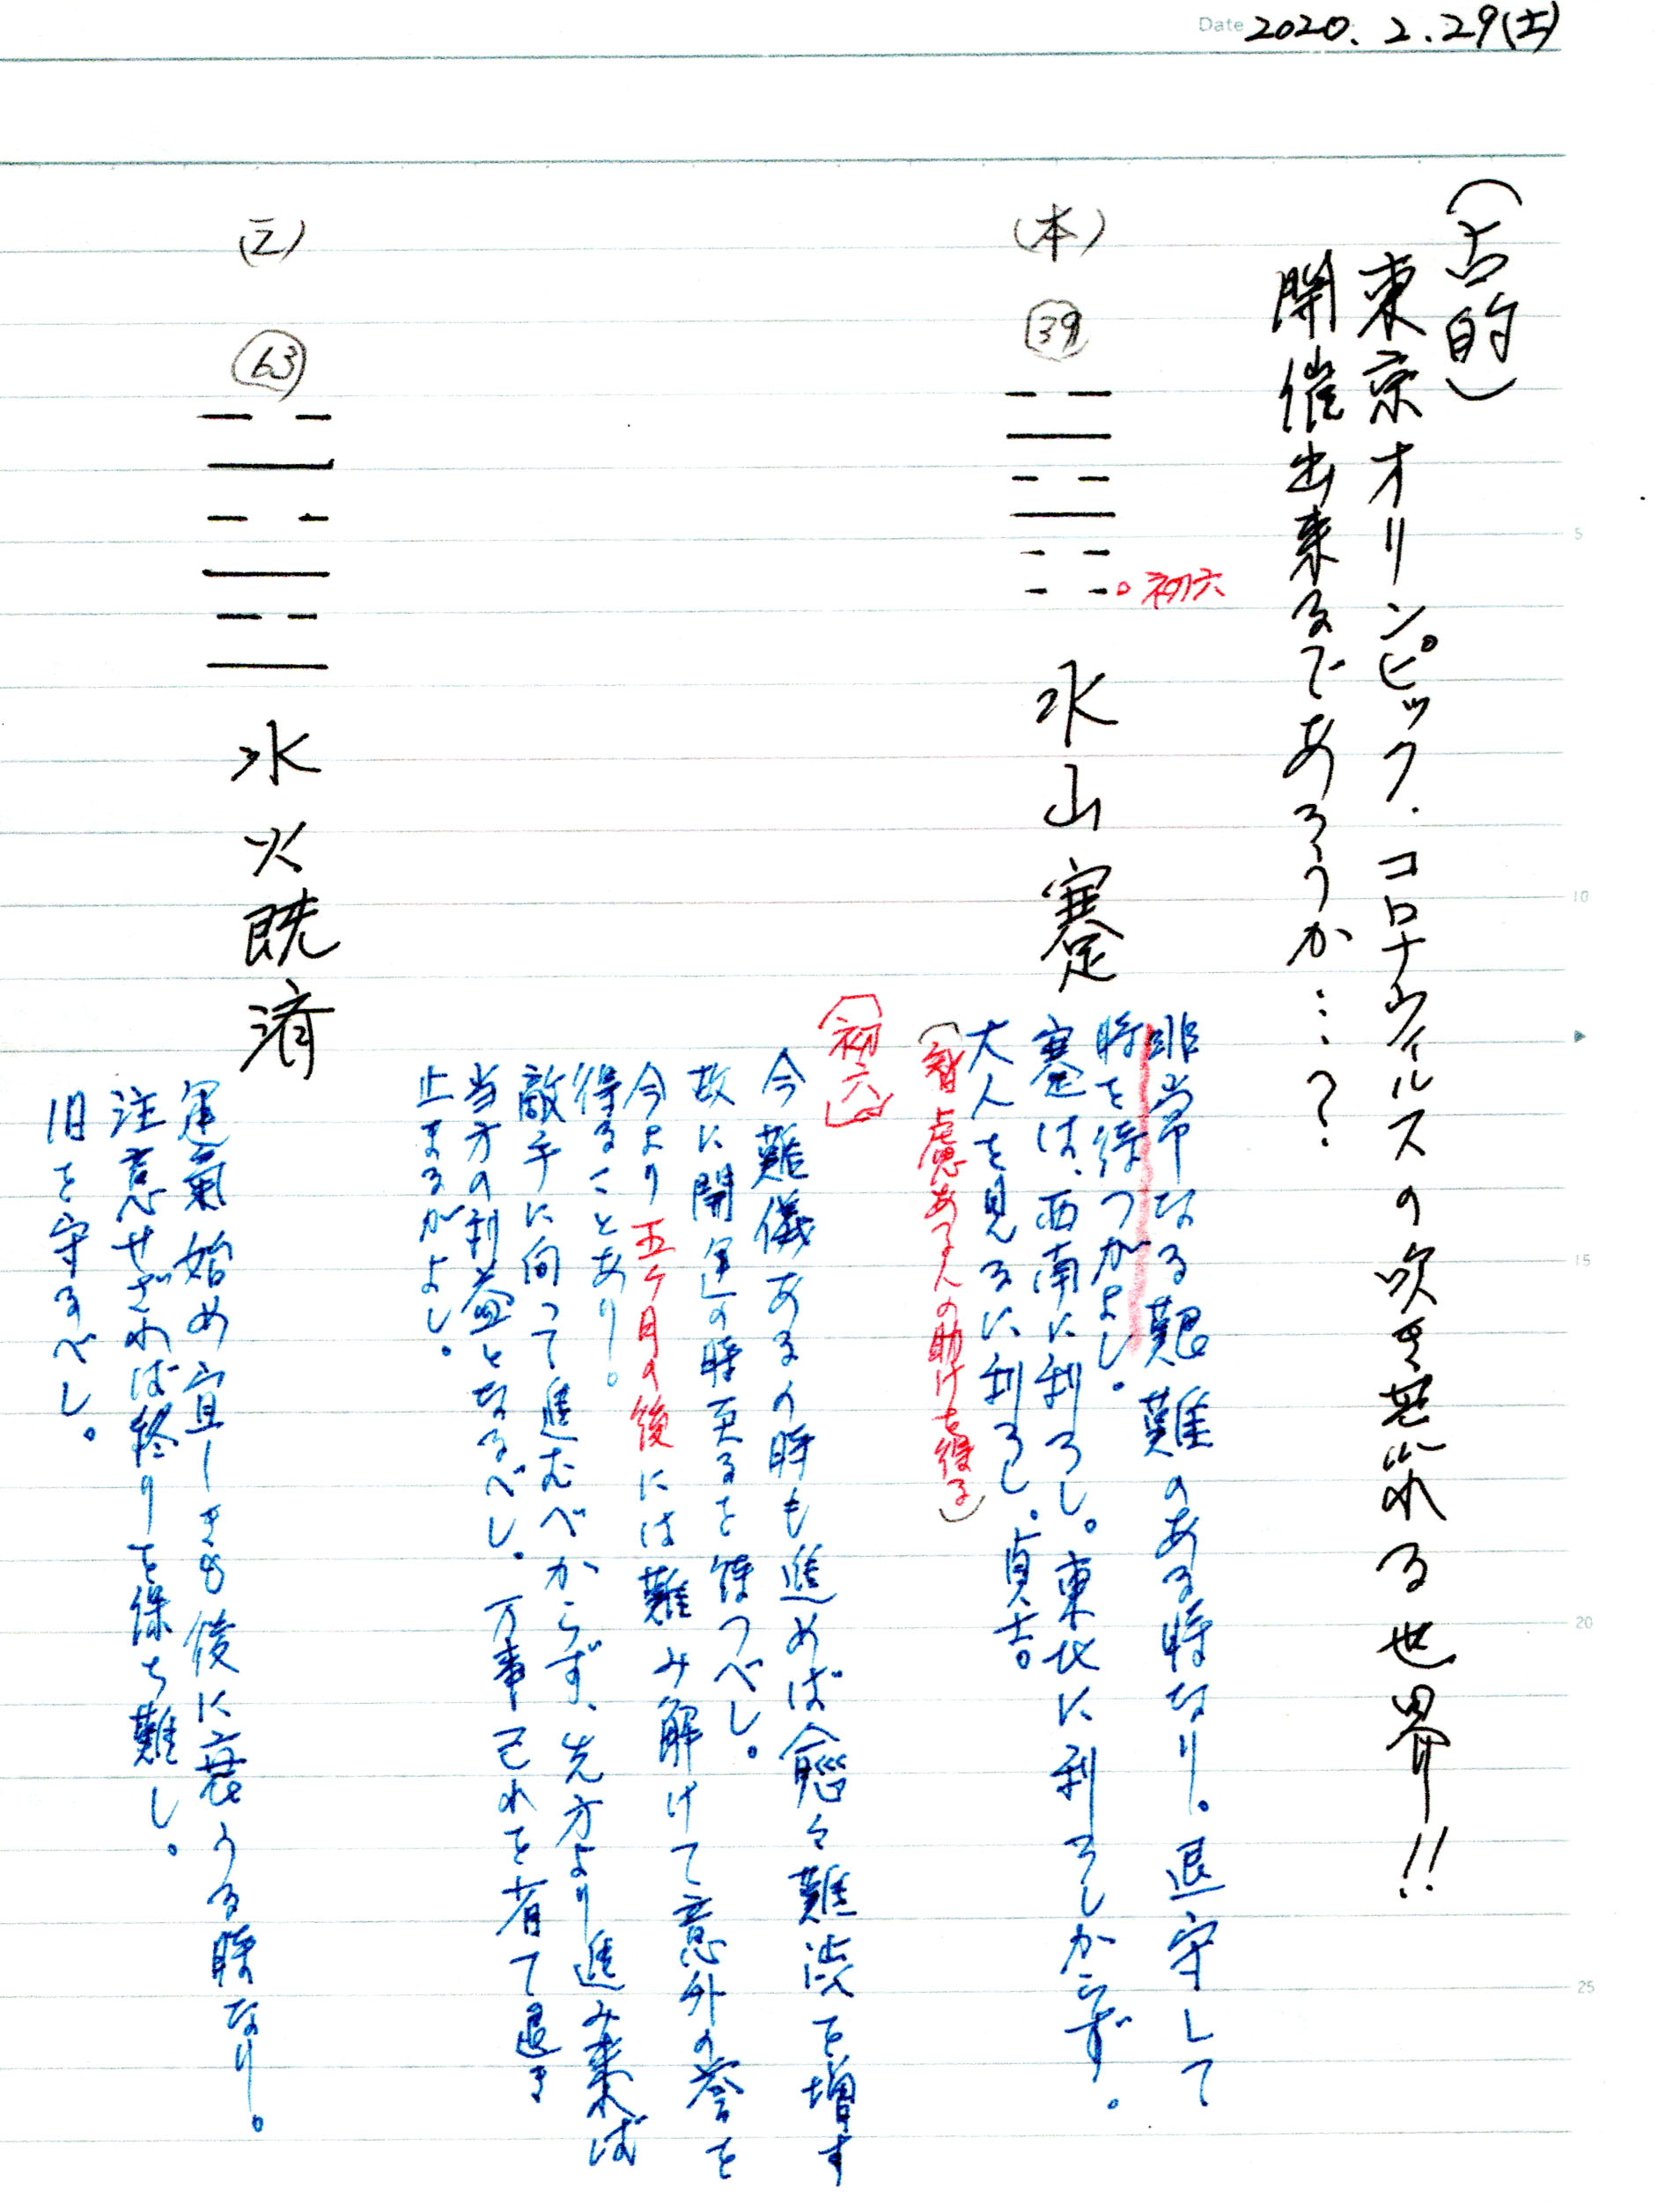 Date 2020.2.29(土)
(占的)
東京オリンピック.コロナウイルスの吹き荒れる世界!!
開催出来るであろうか…?
(本)
39
初六
水山蹇
非常なる艱難のある時なり。退守して
時を待つがよし。
蹇は、西南に利ろし。東北に利ろしからず。
大人を見るに利ろし。貞吉。
(智慮ある人の助けを得る)
(初六)
今難儀あるの時も進めば愈々難渋を増す
故に開運の時至るを待つべし。
今より五ケ月の後には難み解けて意外の誉を
得ることあり。
敵手に向って進むべからず、先方より進み来れば
当方の利益となるべし。万事己れを省て退き
止まるがよし。
(之)
63
水火既済
運氣始め宜しきも後に衰うる時なり。
注意せざれば終りを保ち難し。
旧を守るべし。
5
10
15
20
25